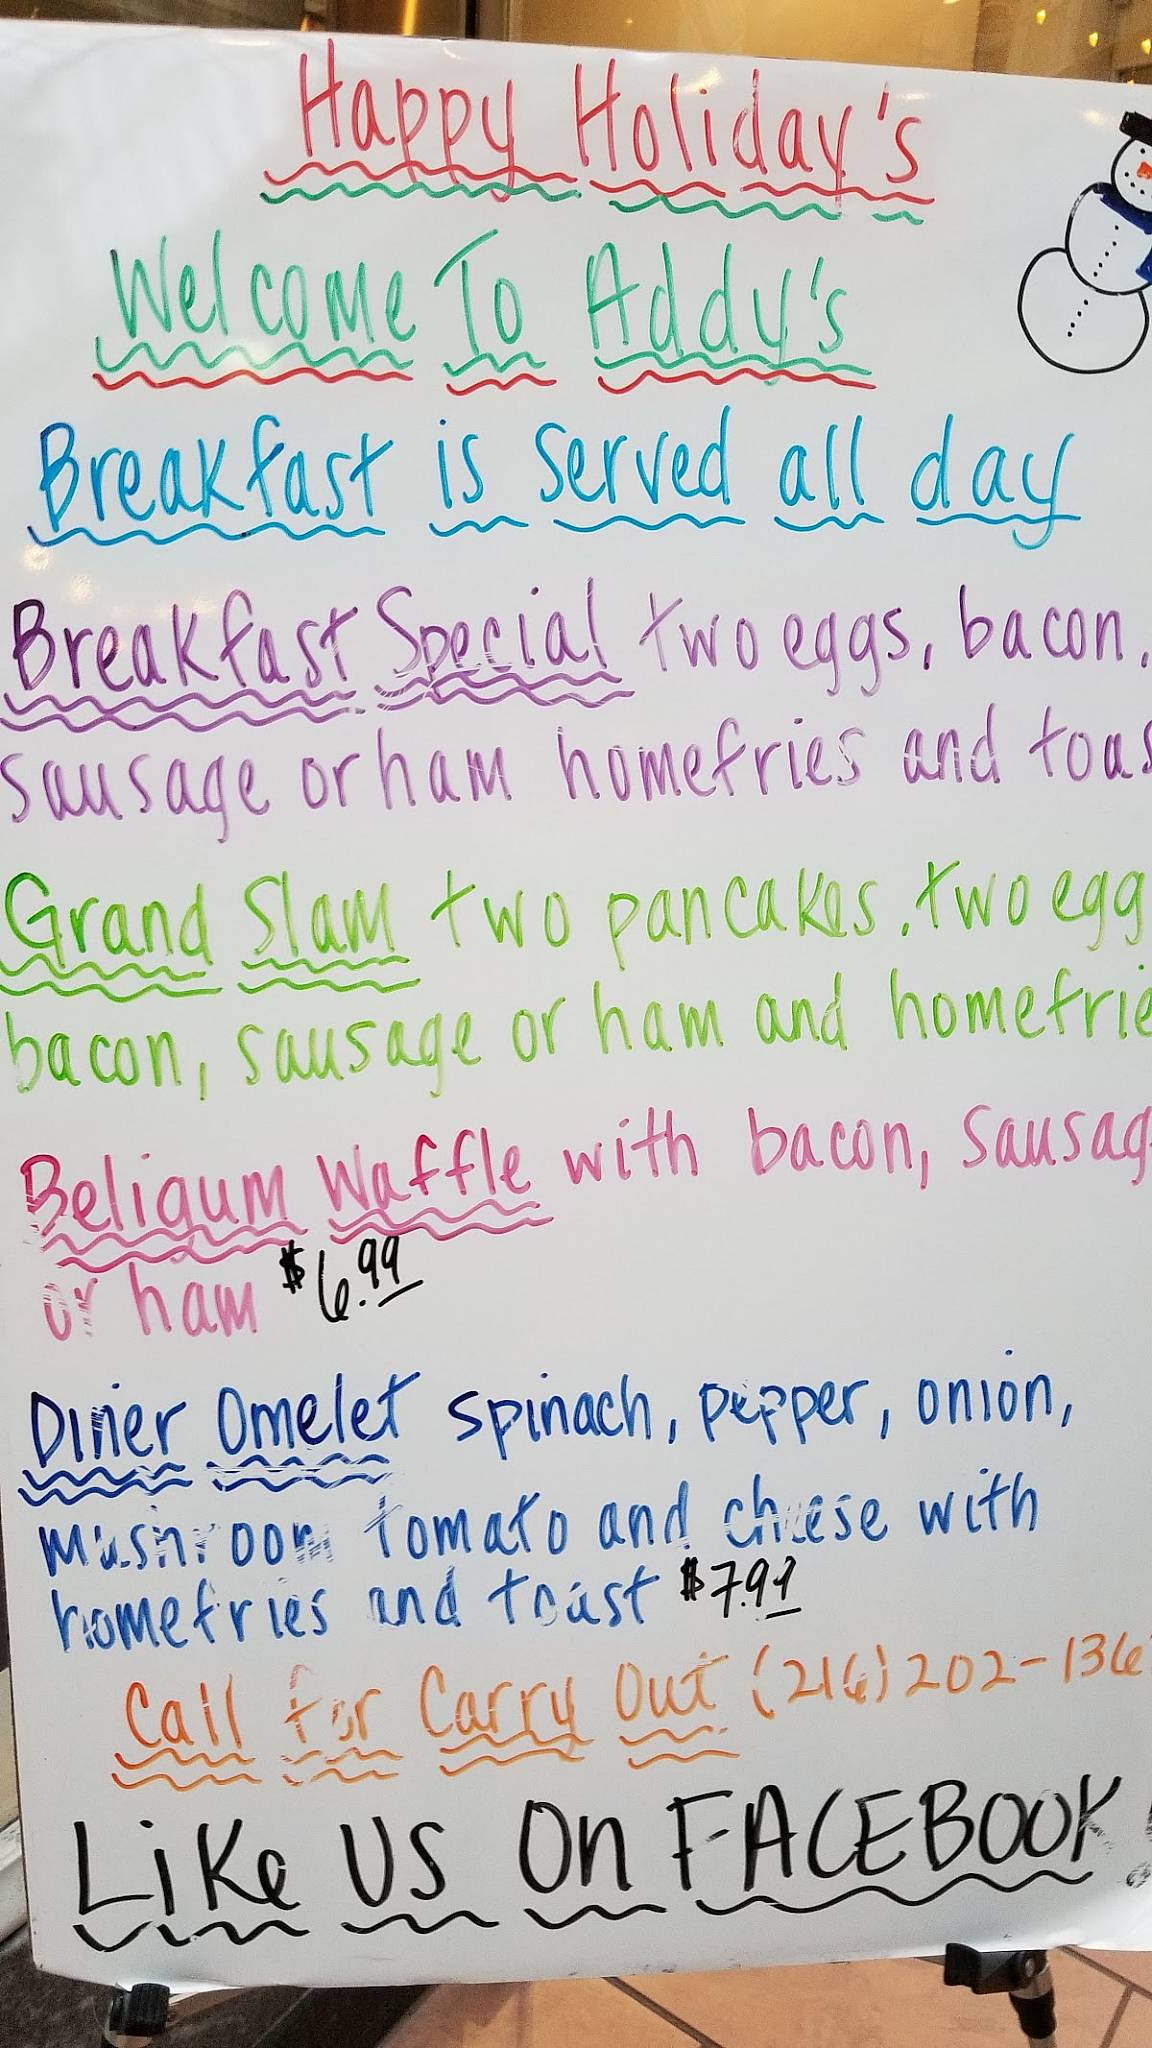 Happy Holiday's
Welcome To Addy's
Breakfast is served all day
Breakfast Special two eggs, bacon,
sausage or ham homefries and toas
Grand Slam two pancakes, two egg
bacon, sausage or ham and homefrie
Beligum Waffle with bacon, sausag
or ham $6.99
Diner Omelet spinach, pepper, onion,
mushroom tomato and cheese with
homefries and toast $7.99
Call for Carry Out (216) 202-136
Like Us On FACEBOOK!